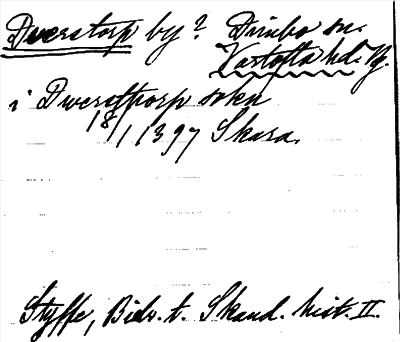 Dverstorp by? Dimbo sn.
Vartofta hd. Vg.
i Dwerstthorp sokn
18/1 1397 Skara.
Styffe, Bidr. t. Skand. hist. II.